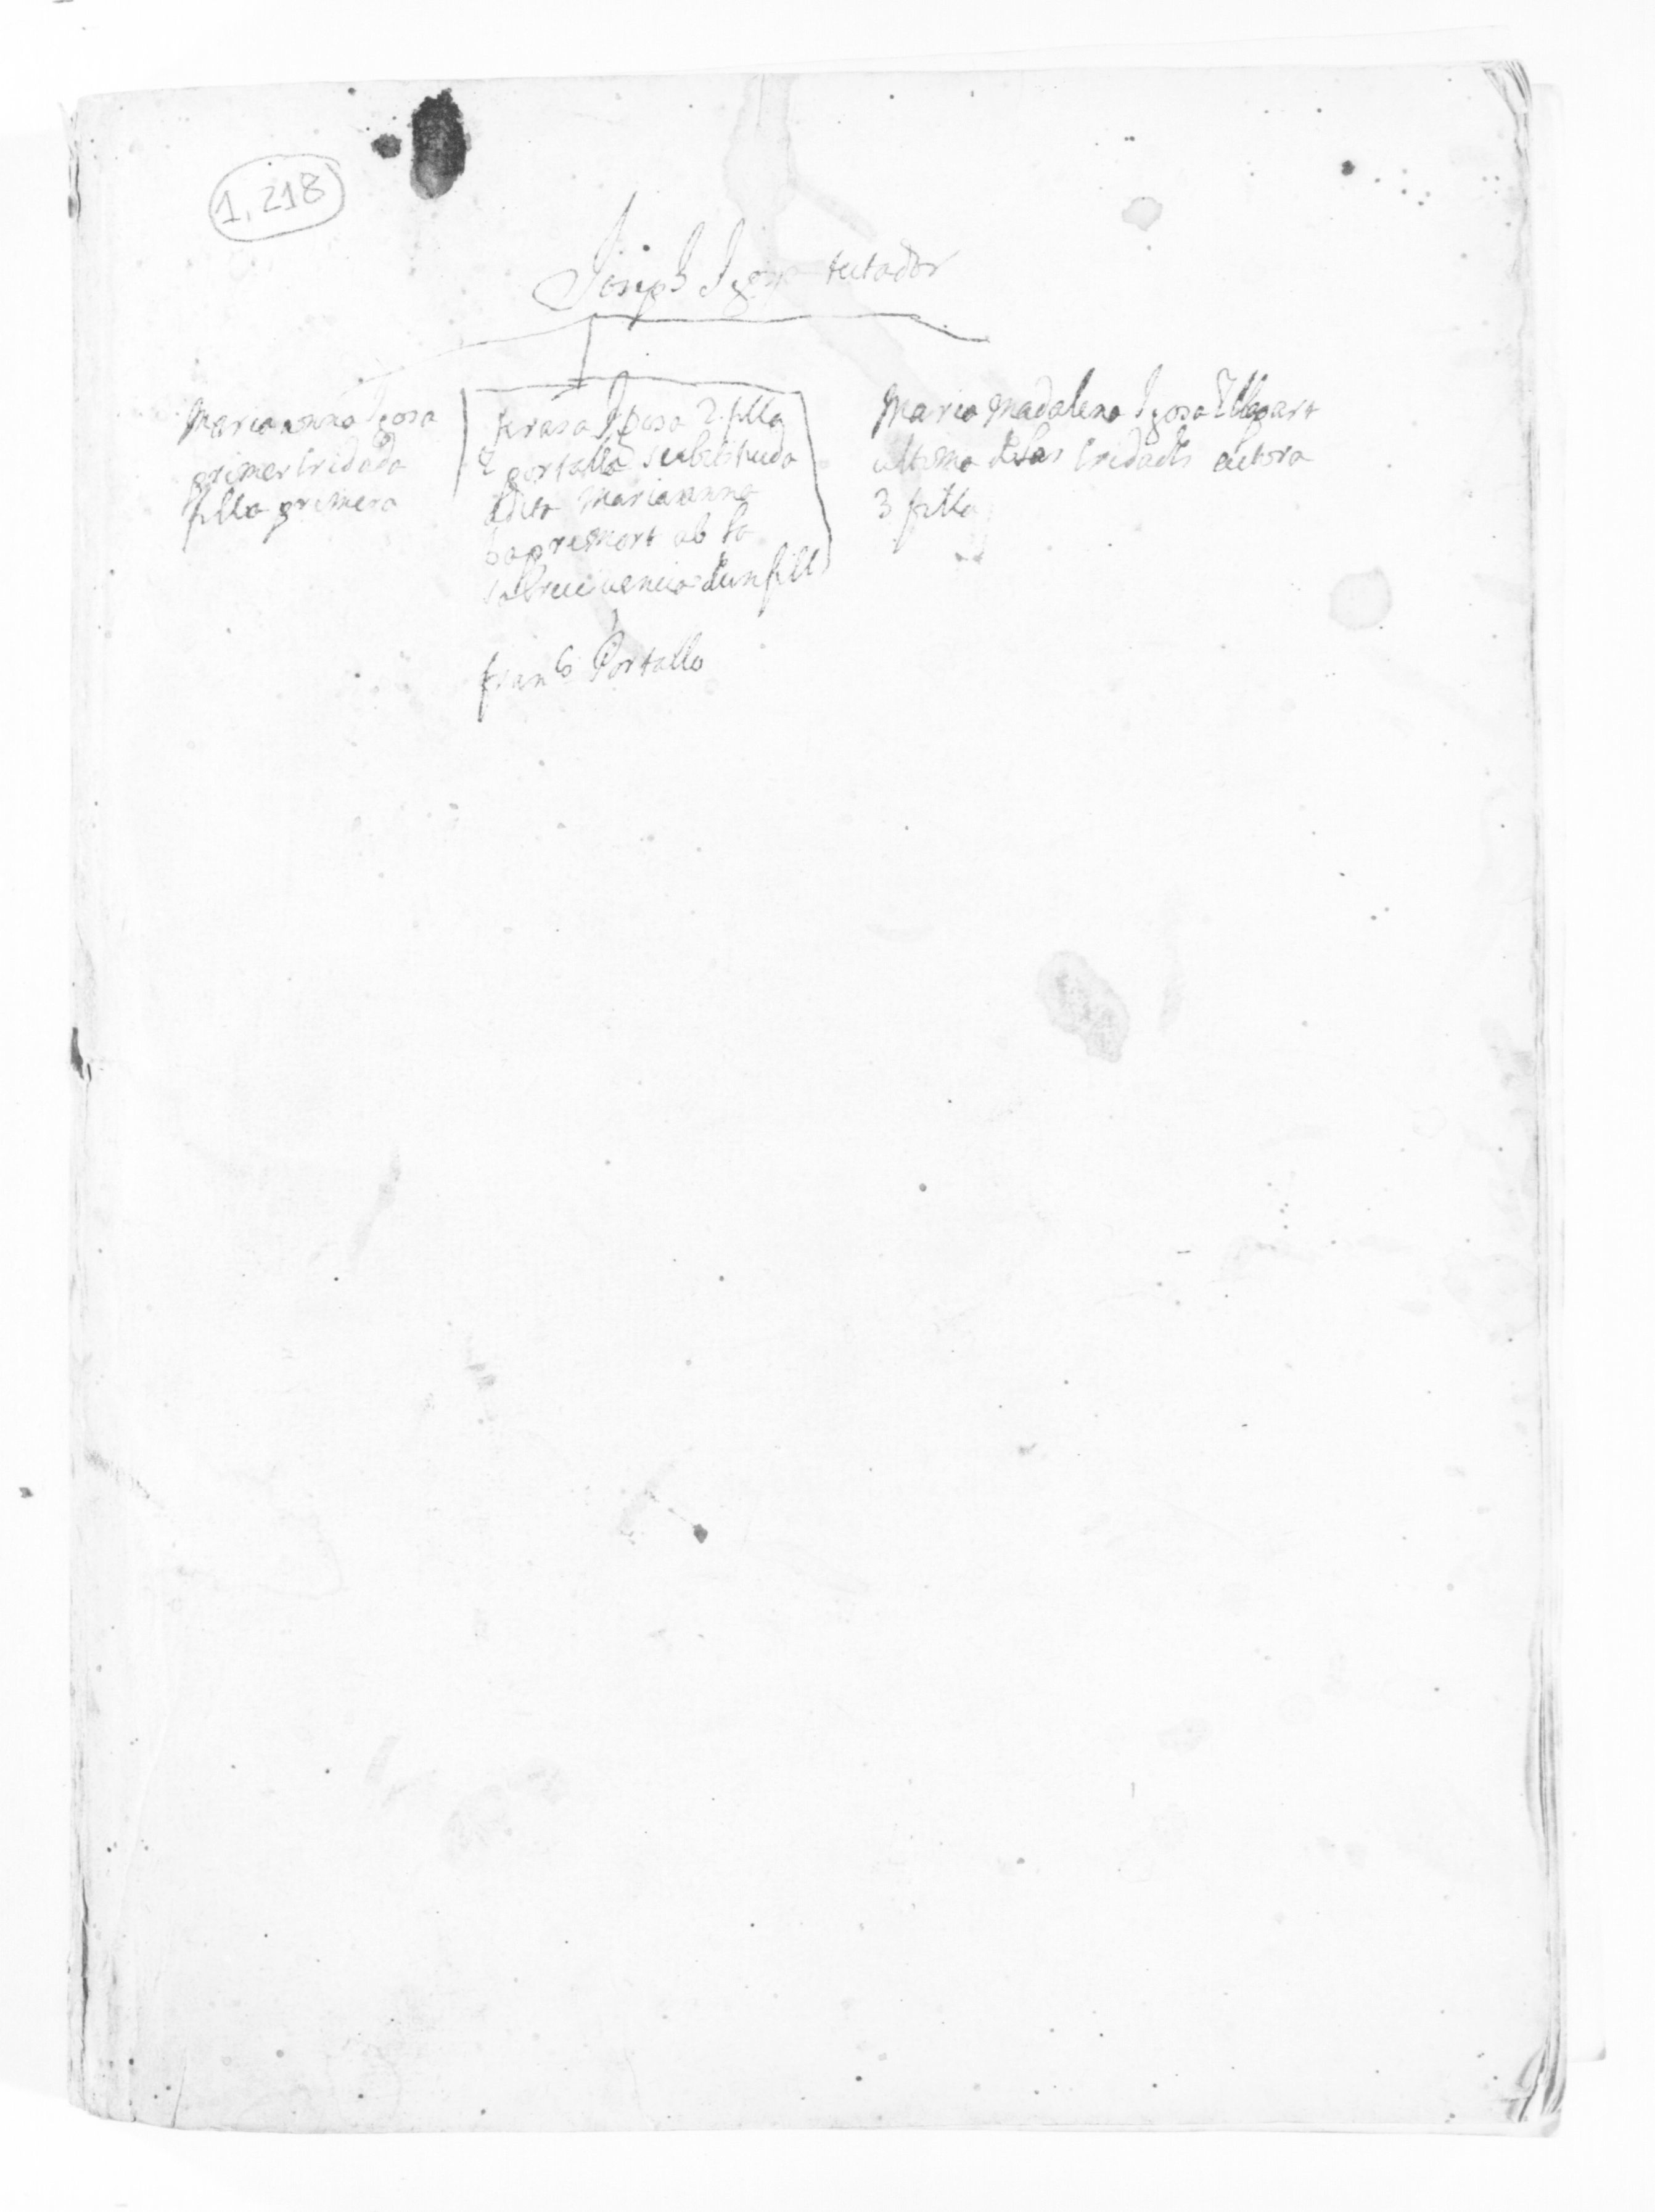 1,218
Joseph Igosa testador
Marianna Igosa
primer cridada
filla primera
terasa Igosa 2 filla
y portalla substituida
a dita Marianna
ha premort ab la
sobrevivencia de un fill
franco Portalla
Maria Madalena Igosa
ultima de las cridades actora
3 filla